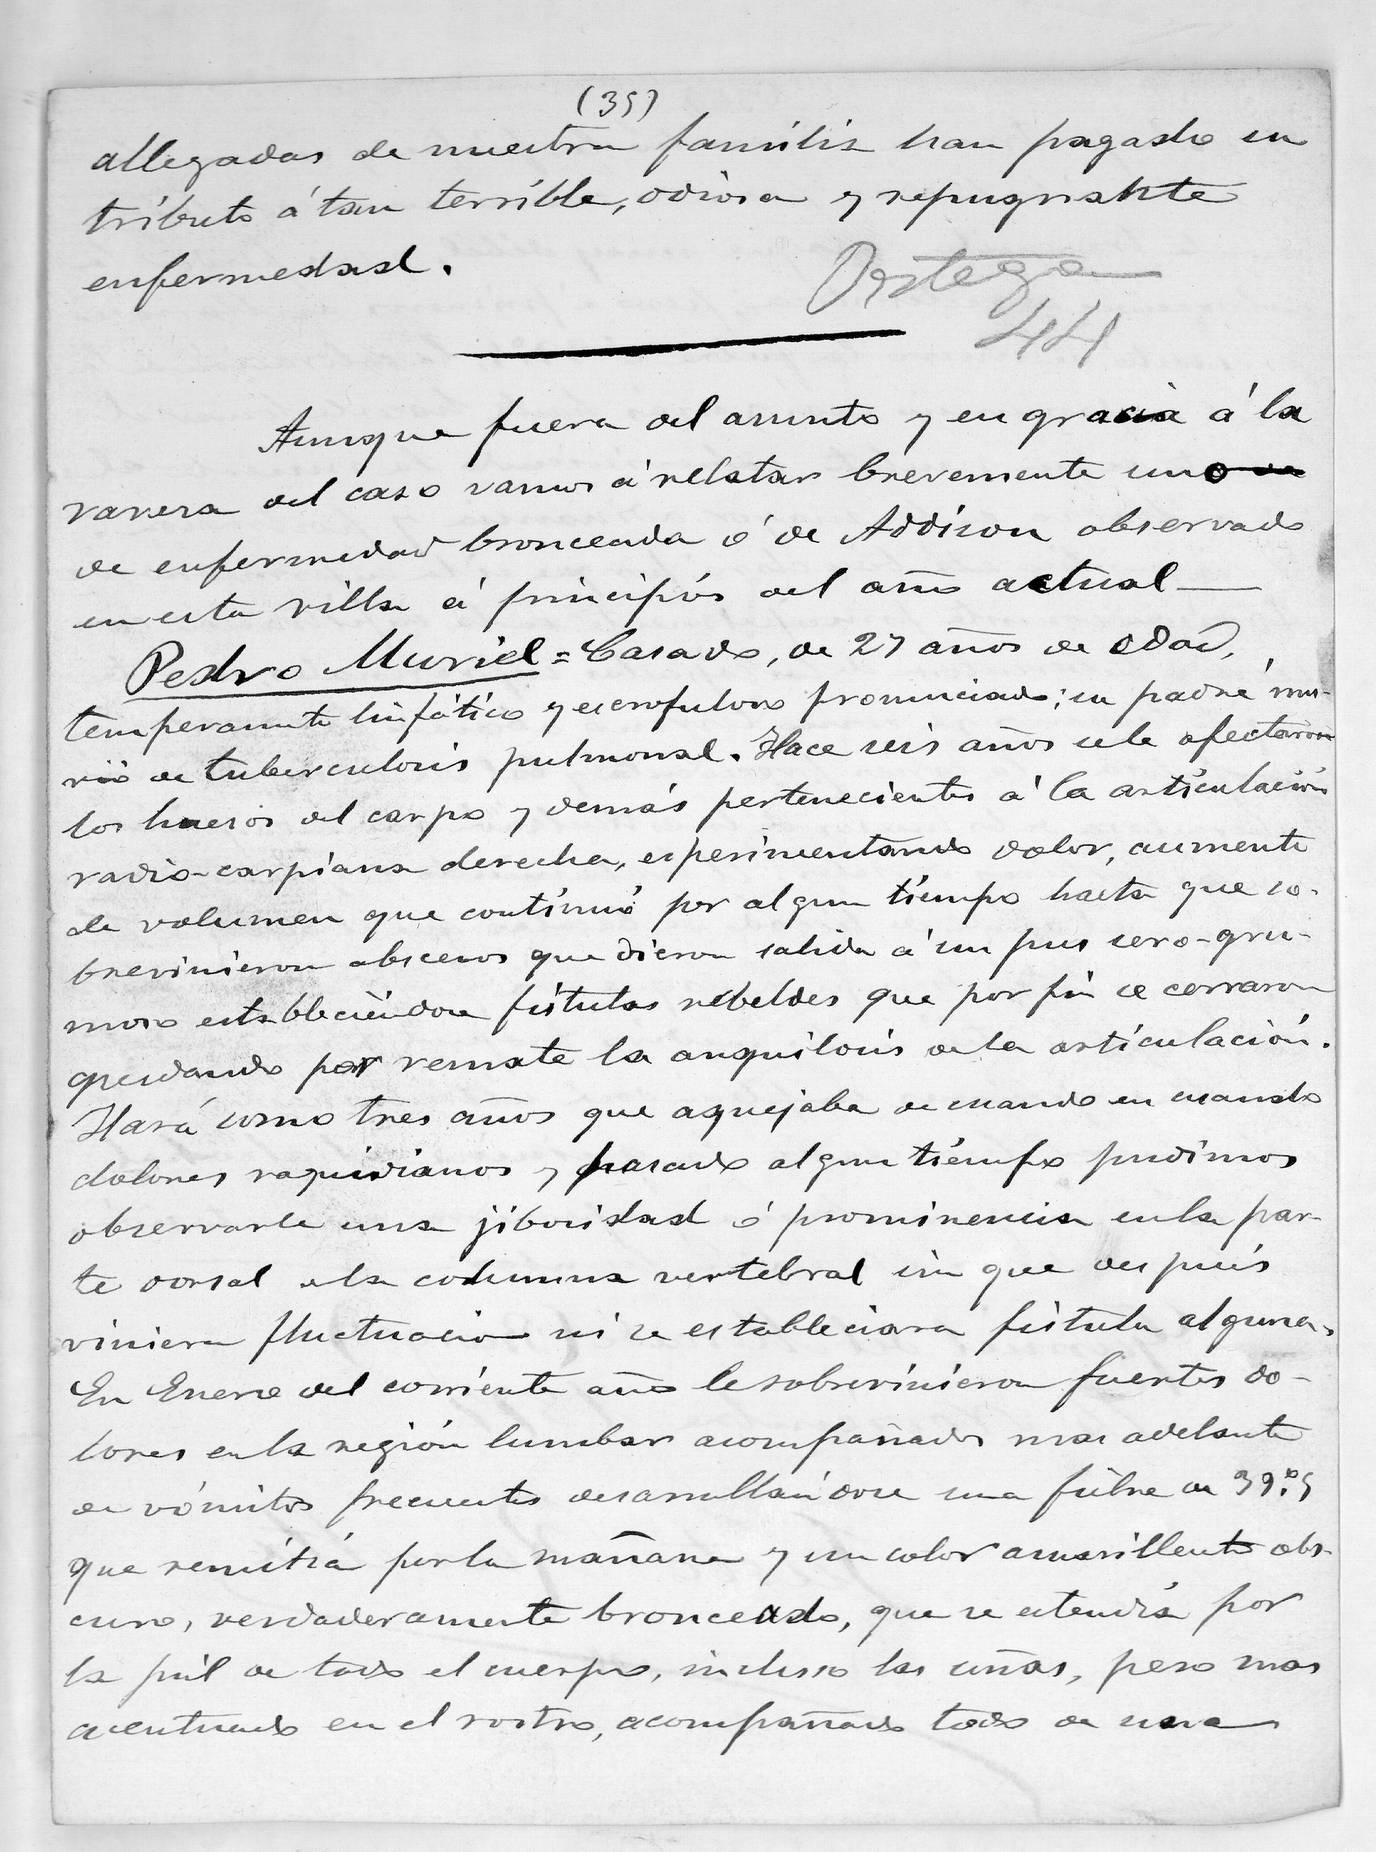 (35)
allegadas de nuestra familia han pagado un
tributo á tan terrible, odiosa y repugnante
enfermedad.
Ortega
44
Aunque fuera del asunto y en gracia á la
rareza del caso vamos á relatar brevemente uno
de enfermedad bronceada ó de Addison observado
en esta villa á principios del año actual—
Pedro Muriel = Casado, de 27 años de edad,
temperamento linfático y escrofuloso pronunciado; su padre mu-
rió de tuberculosis pulmonal. Hace seis años se le afectaron
los huesos del carpo y demás pertenecientes á la articulación
radio-carpiana derecha, esperimentando dolor, aumento
de volumen que continuó por algun tiempo hasta que so-
brevinieron abscesos que dieron salida á un pus sero-gru-
moso estableciéndose fístulas rebeldes que por fin se cerraron
quedando por remate la anquilosis de la articulación.
Hará como tres años que aquejaba de cuando en cuando
dolores raquidianos y pasado algun tiempo pudimos
observarle una jibosidad ó prominencia en la par-
te dorsal de la columna vertebral sin que después
viniera fluctuacion ni se estableciera fístula alguna.
En Enero del corriente año le sobrevinieron fuertes do-
lores en la región lumbar acompañados mas adelante
de vómitos frecuentes desarrollándose una fiebre de 39º,5
que remitía por la mañana y un color amarillento obs-
curo, verdaderamente bronceado, que se estendía por
la piel de todo el cuerpo, incluso las uñas, pero mas
acentuado en el rostro, acompañado todo de una